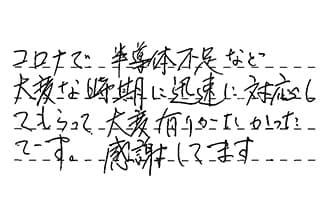 コロナで 半導体不足など
大変な時期に迅速に対応し
てもらって、大変有りがたかった
です。感謝してます